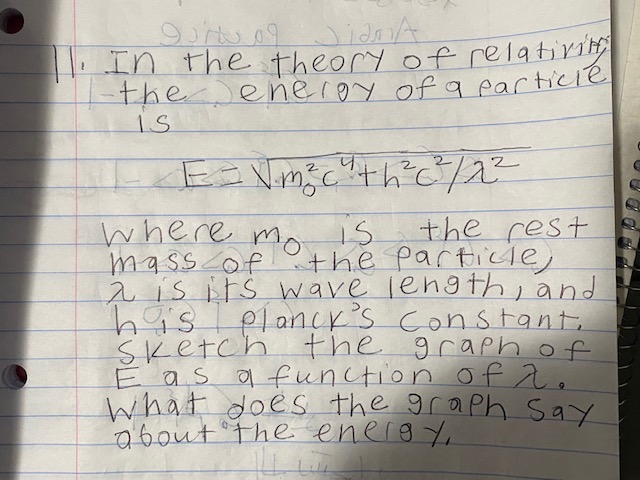 11. In the theory of relativity
the energy of a particle
is
E = √m₀²c⁴+h²c²/λ²
where m₀ is the rest
mass of the particle,
λ is its wave length, and
h is planck's constant.
Sketch the graph of
E as a function of λ.
What does the graph say
about the energy.